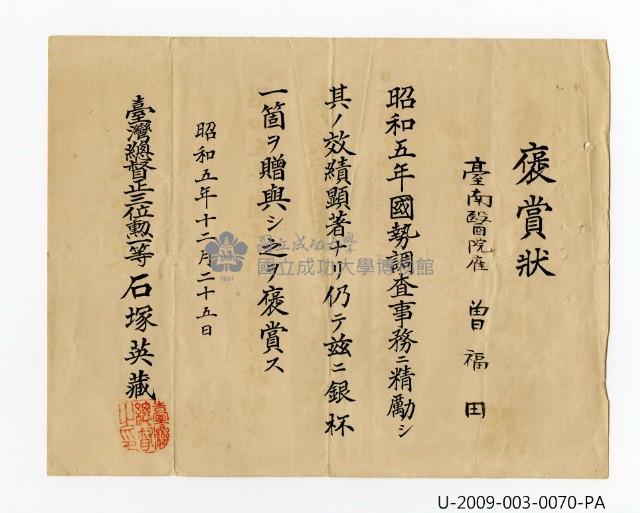 褒賞状
臺南醫院雇 曽福田
昭和五年國勢調査事務ニ精勵シ
其ノ效績顯著ナリ仍テ茲ニ銀杯
一箇ヲ贈與シ之ヲ褒賞ス
昭和五年十二月二十五日
臺灣總督正三位勲一等 石塚英藏
臺灣總督之印
國立成功大學
國立成功大學博物館
1931
U-2009-003-0070-PA